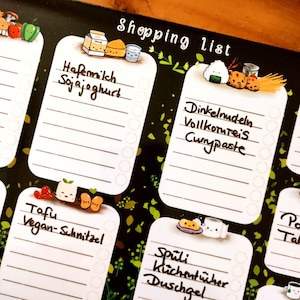 Shopping List
Hafermilch
Sojajoghurt
Dinkelnudeln
Vollkornreis
Currypaste
Tofu
Vegan-Schnitzel
Spüli
Küchentücher
Duschgel